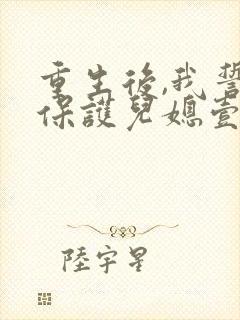 重生後,我誓
保護兒媳壹
陸宇星